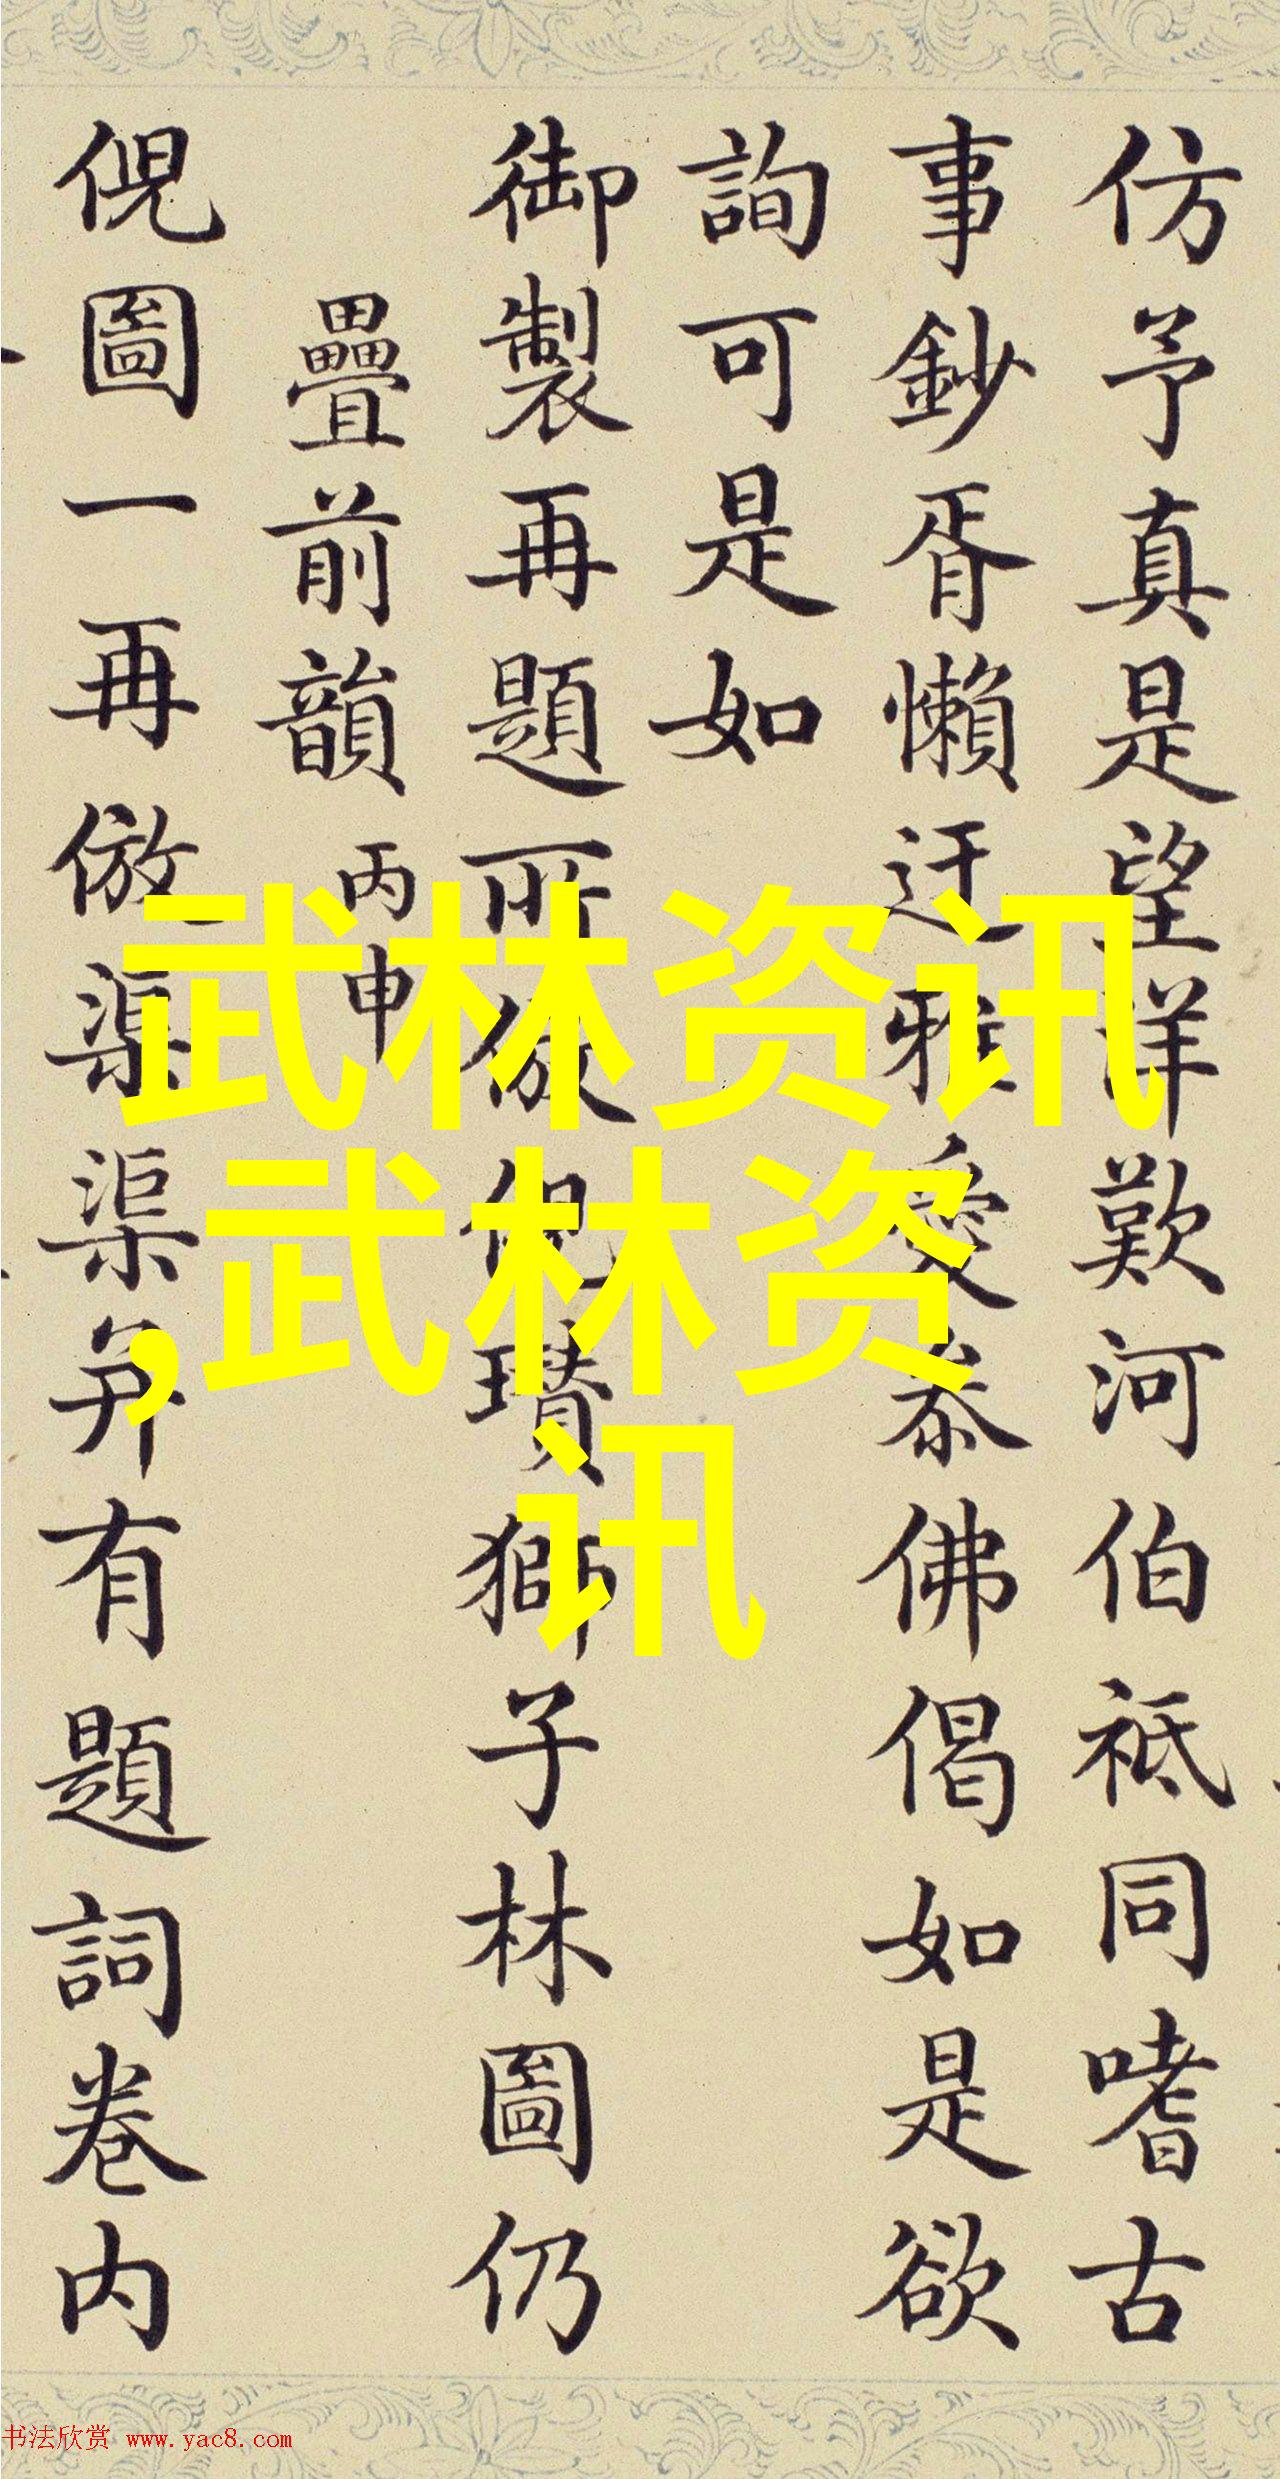 仿予真是望洋歎河伯祇同嗜古
事鈔胥懶迂雅愛叅佛偈如是欲
詢可是如
御製再題所倣倪瓚獅子林圖仍
疊前韻丙申
倪圖一再倣渠渠并有題詞卷内
武林资讯
,武林资
讯
书法欣赏 www.yac8.com